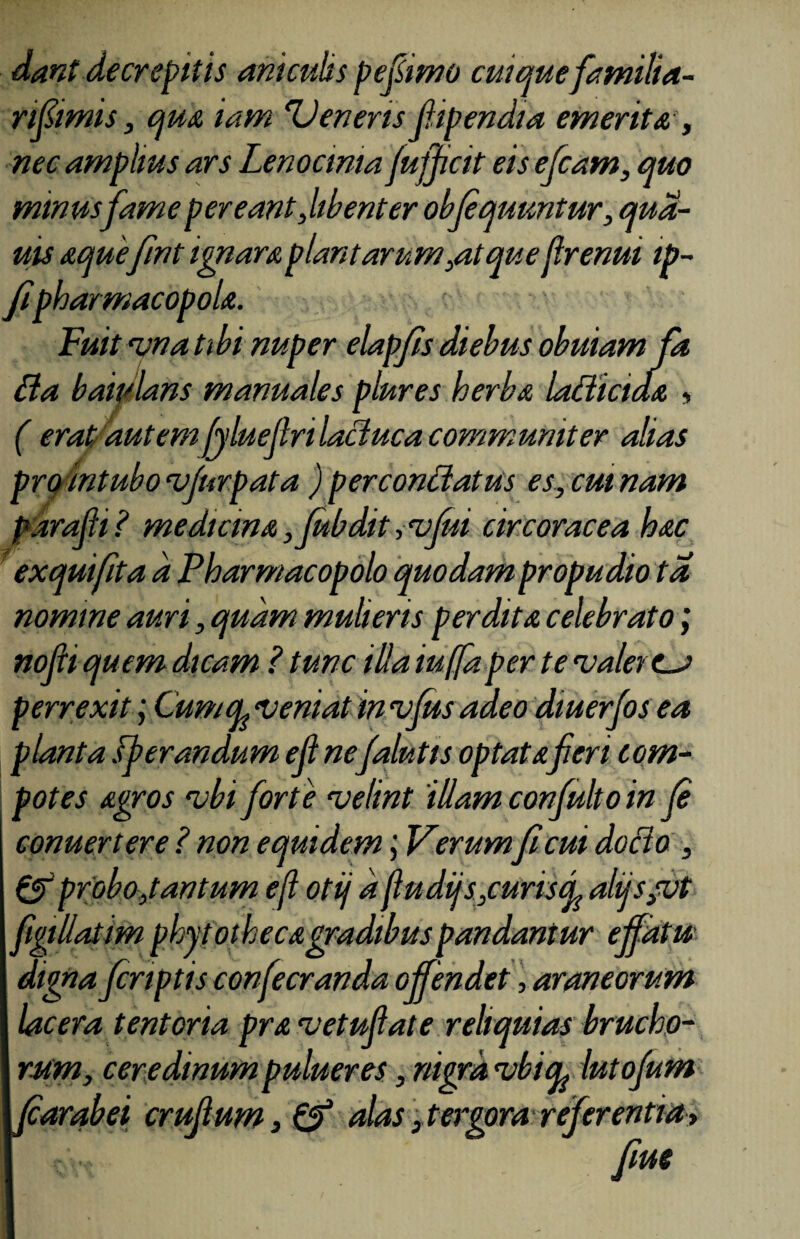 dant decrepitis aniculis peſsimo cuique familia-
riſsimis, quæ iam Veneris ſtipendia emeritæ,
nec amplius ars Lenocinia ſufficit eis eſcam, quo
minus fame pereant, libenter obſequuntur, quã-
uis æquè ſint ignaræ plantarum, atque ſtrenui ip-
ſi pharmacopolæ.
Fuit vna tibi nuper elapſis diebus obuiam fa
cta baiulans manuales plures herbæ lacticidæ,
( erat autem ſylueſtri lactuca communiter alias
pro intubo vſurpata ) percontlatus es, cui nam
paraſti? medicinæ, ſubdit, vſui circoracea hæc
exquiſita à Pharmacopolo quodam propudio tã
nomine auri, quàm mulieris perditæ celebrato;
noſti quem dicam? tunc illa iuſſa per te valere
perrexit; Cumq; veniat in vſus adeo diuerſos ea
planta ſperandum eſt ne ſalutis optatæ fieri com-
potes ægros vbi fortè velint illam conſulto in ſe
conuertere? non equidem; Verum ſi cui docto,
& probo, tantum eſt otij à ſtudijs, curisq; alijs, vt
ſigillatim phytothecæ gradibus pandantur effatu
digna ſcriptis conſecranda offendet, araneorum
lacera tentoria præ vetuſtate reliquias brucho-
rum, ceredinum pulueres, nigrà vbiq; lutoſum
ſcarabei cruſtum, & alas, tergora referentia,
ſiue